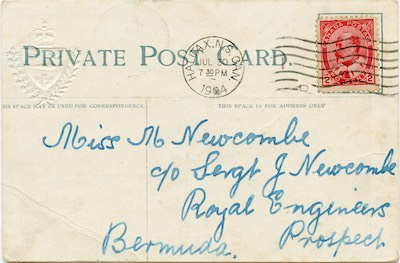 PRIVATE POST CARD.
HALIFAX, N.S. CAN.
JUL 30
7 30 PM
1904
CANADA POSTAGE
2 2
THIS SPACE MAY BE USED FOR CORRESPONDENCE.
THIS SPACE IS FOR ADDRESS ONLY
Miss M Newcombe
c/o Sergt J Newcombe
Royal Engineers
Bermuda. Prospect